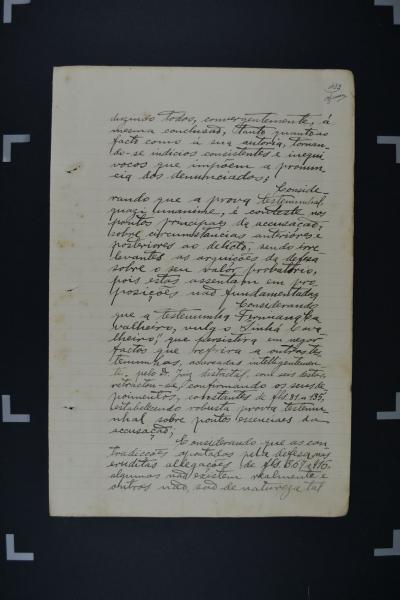 duzindo todos, convergentemente, á
mesma conclusão, tanto quanto ao
facto como á sua autoria, tornan-
do-se indicios consistentes e inequi
vocos que impõem a pronun
cia dos denunciados;
Conside-
rando que a prova testemunhal
quasi unanime, é conteste nos
pontos principaes da accusação,
sobre circumstancias anteriores e
posteriores ao delicto, sendo irre
levantes as arguições da defesa
sobre o seu valor probatorio,
pois estas assentam em pro
posições não fundamentadas
Considerando
que a testemunha Fernand Ca
valheiro, vulgo Sinhá Cava
lheiro, que persistira em negar
factos que referira a outras tes
temunhas, acareadas intelligentemen
te, pelo Dr. Juiz districtal, com
retractou-se, confirmando os seus de
poimentos, constantes de fls. 31 a 135,
estabelecendo robusta prova testemu
nhal sobre pontos essenciaes da
accusação;
Considerando que as con
tradicções apontadas pela defesa nas
eruditas allegações de fls.
algumas não existem realmente e
outros não, são de natureza tal